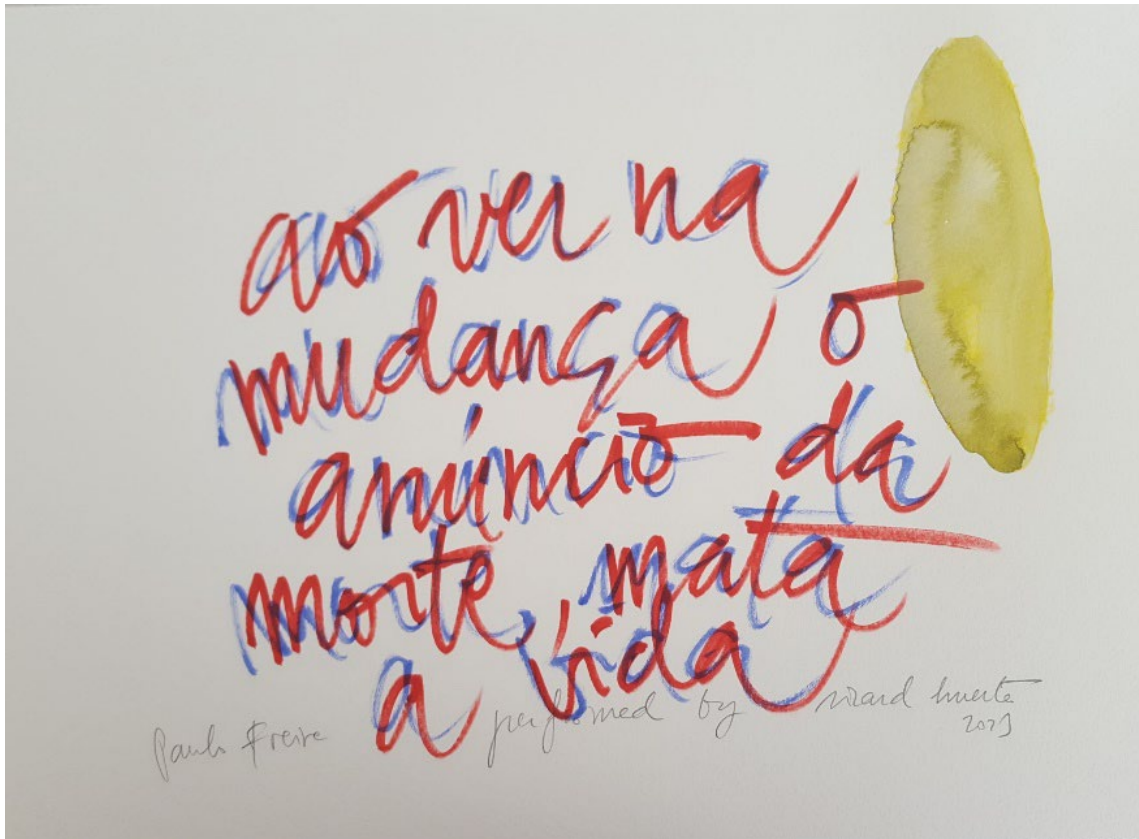 ao ver na
mudança o
anúncio da
morte, mata
a vida
Paulo Freire performed by ricard huerta
2023